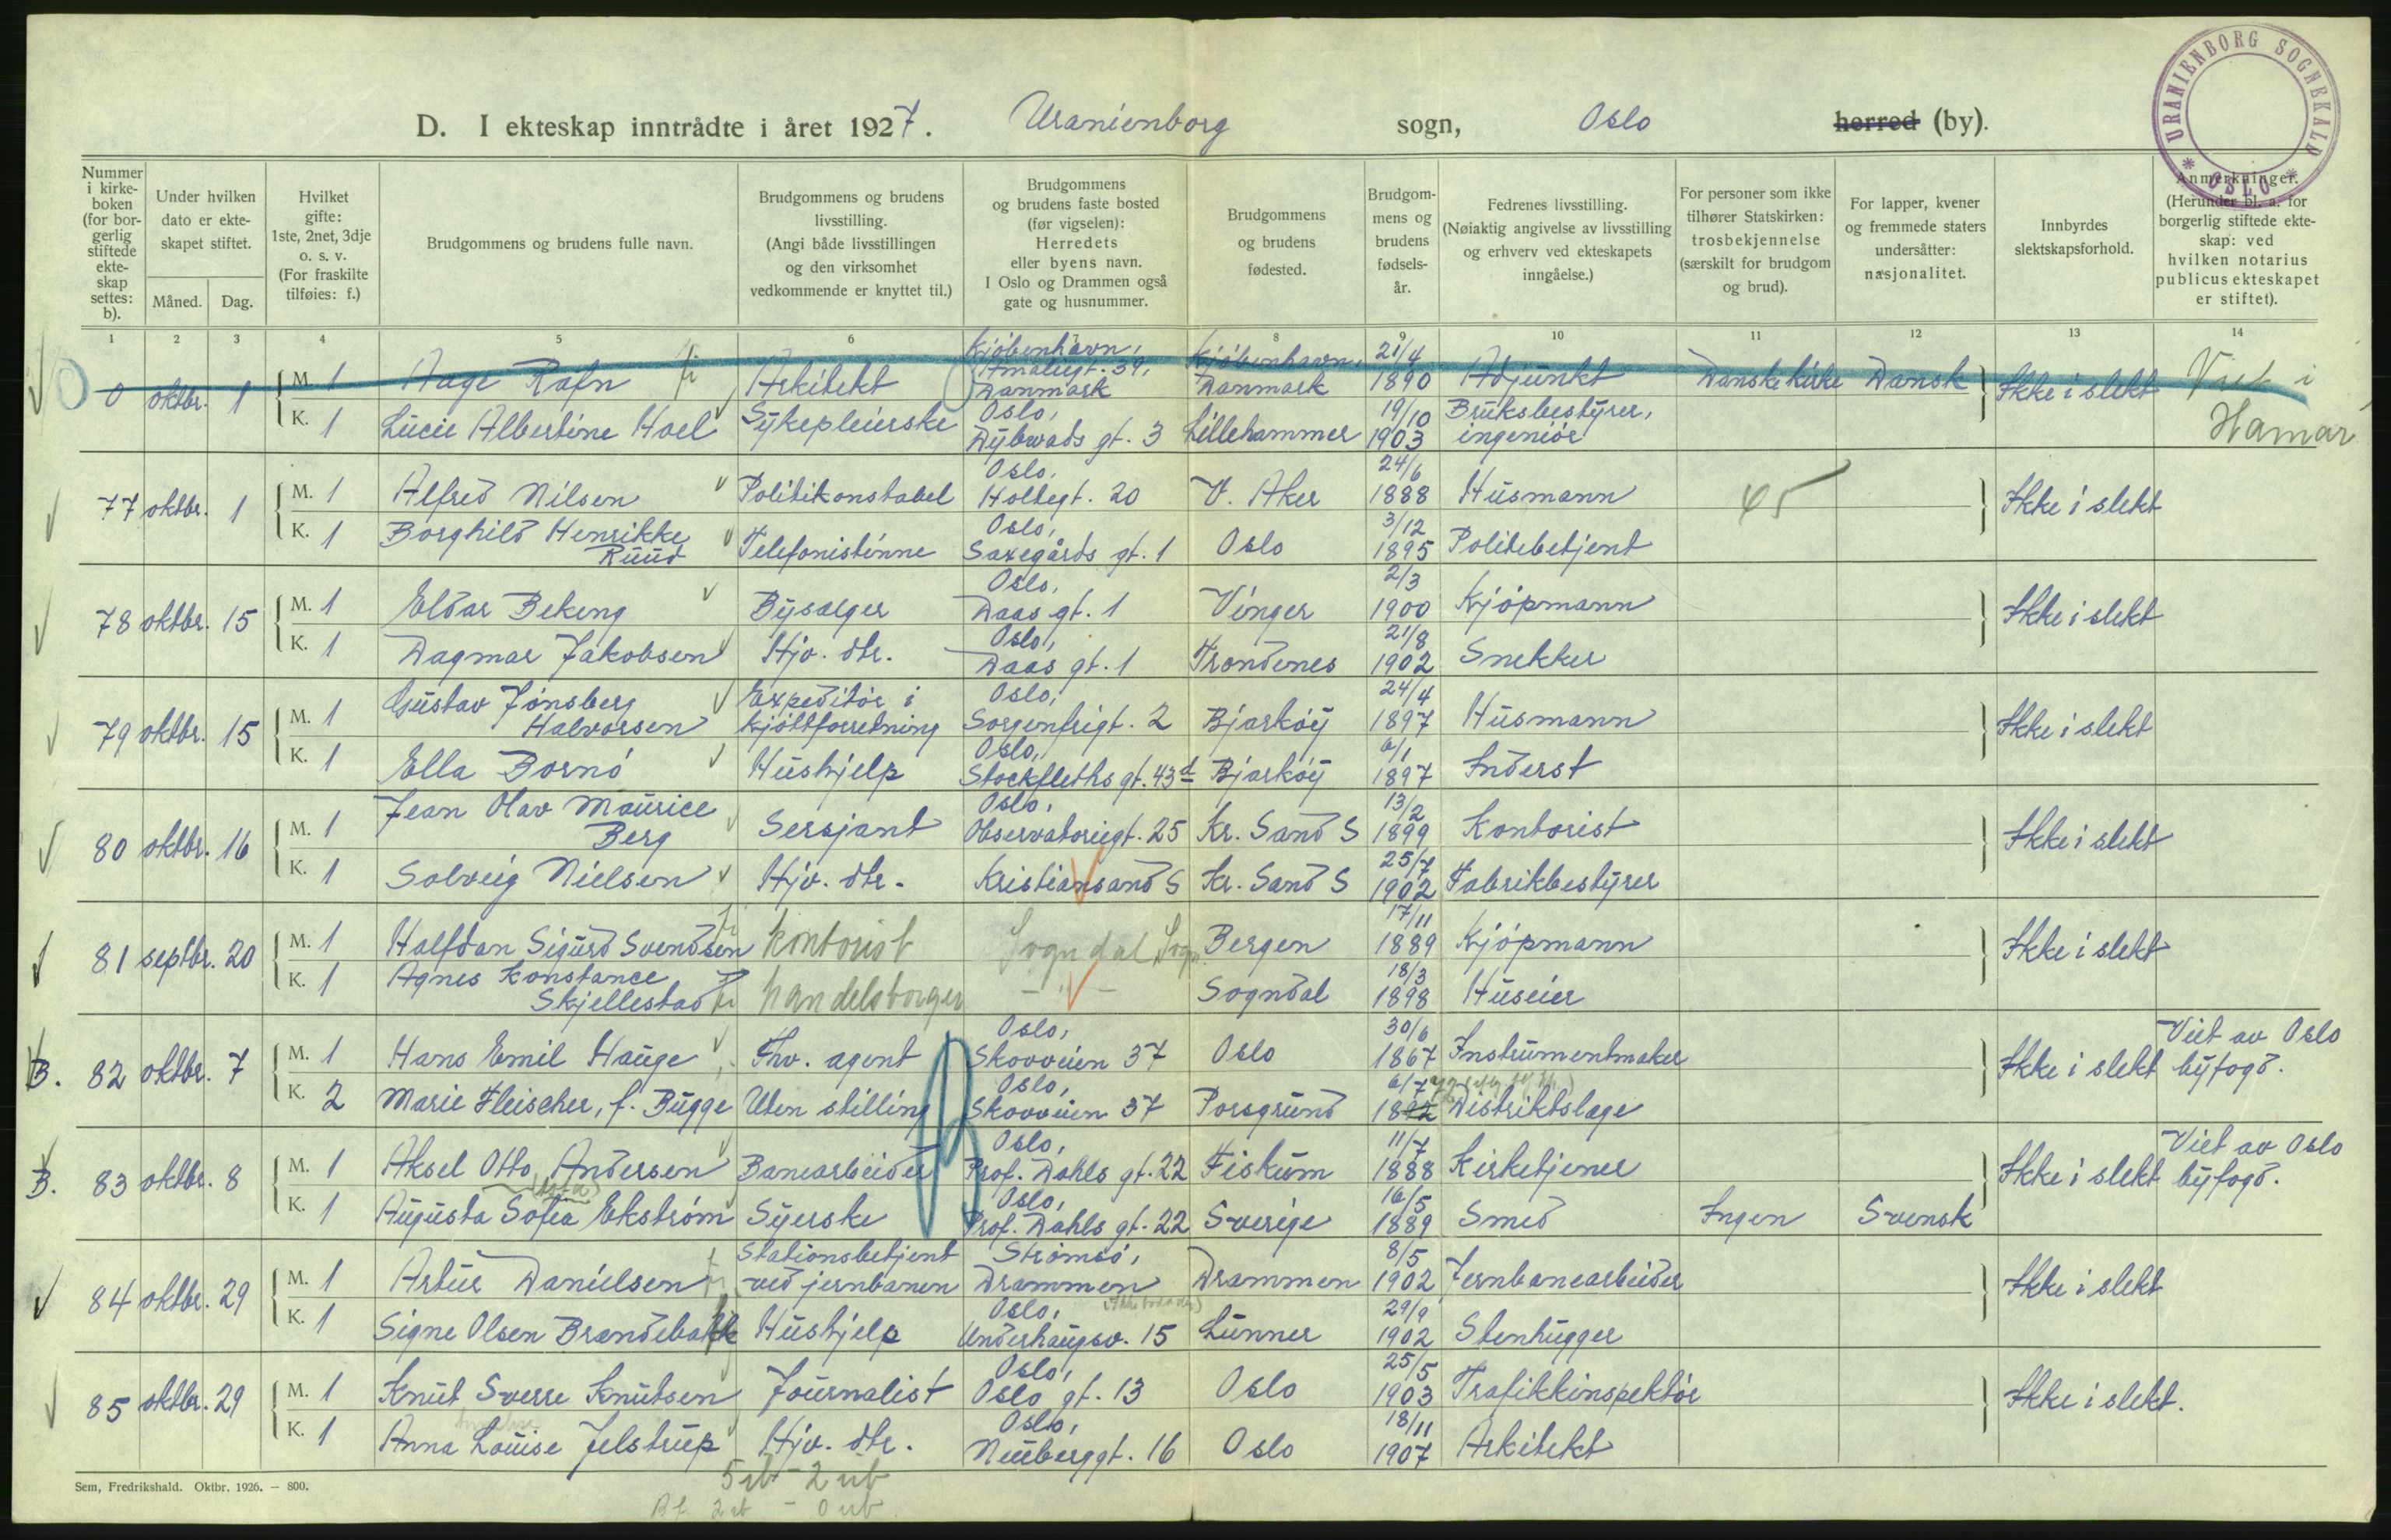 D. I ekteskap inntrådte i året 1927. Uranienborg sogn, Oslo herred (by).
URANIENBORG SOGNEKALD * OSLO *
Nummer i kirke-boken (for bor-gerlig stiftede ekte-skap settes: b).
Under hvilken dato er ekte-skapet stiftet.
Måned. Dag.
Hvilket gifte: 1ste, 2net, 3dje o. s. v. (For fraskilte tilføies: f.)
Brudgommens og brudens fulle navn.
Brudgommens og brudens livsstilling. (Angi både livsstillingen og den virksomhet vedkommende er knyttet til.)
Brudgommens og brudens faste bosted (før vigselen): Herredets eller byens navn. I Oslo og Drammen også gate og husnummer.
Brudgommens og brudens fødested.
Brudgom-mens og brudens fødsels-år.
Fedrenes livsstilling. (Nøiaktig angivelse av livsstilling og erhverv ved ekteskapets inngåelse.)
For personer som ikke tilhører Statskirken: trosbekjennelse (særskilt for brudgom og brud).
For lapper, kvener og fremmede staters undersåtter: nasjonalitet.
Innbyrdes slektskapsforhold.
Anmerkninger. (Herunder bl. a. for borgerlig stiftede ekte-skap: ved hvilken notarius publicus ekteskapet er stiftet).
1 2 3 4 5 6 8 9 10 11 12 13 14
0 oktbr. 1 M. 1 Aage Rafn Arkitekt Kjøbenhavn, Amaliegt. 39, Danmark Kjøbenhavn, Danmark 21/4 1890 Adjunkt Danske kirke Dansk Ikke i slekt Viet i Hamar
K. 1 Lucie Albertine Hoel Sykepleierske Oslo, Dybwads gt. 3 Lillehammer 19/10 1903 Bruksbestyrer, ingeniør
77 oktbr. 1 M. 1 Alfred Nilsen Politikonstabel Oslo, Holtegt. 20 V. Aker 24/6 1888 Husmann 45 Ikke i slekt
K. 1 Borghild Henrikke Ruud Telefonistinne Oslo, Saxegårds gt. 1 Oslo 3/12 1895 Politibetjent
78 oktbr. 15 M. 1 Eldar Bekeng Bysælger Oslo, Daas gt. 1 Vinger 2/3 1900 Kjøpmann Ikke i slekt
K. 1 Dagmar Jakobsen Hjv. dtr. Oslo, Daas gt. 1 Trondenes 21/8 1902 Snekker
79 oktbr. 15 M. 1 Gustav Jønsberg Halvorsen Expeditør i kjøttforretning Oslo, Sorgenfrigt. 2 Bjarkøy 24/4 1897 Husmann Ikke i slekt
K. 1 Ella Bornø Hushjelp Oslo, Stockfleths gt. 43d Bjarkøy 6/1 1897 Inderst
80 oktbr. 16 M. 1 Jean Olav Maurice Berg Sersjant Oslo, Observatoriegt. 25 Kr. Sand S 13/2 1899 Kontorist Ikke i slekt
K. 1 Solveig Nielsen Hjv. dtr. Kristiansand S Kr. Sand S 25/7 1902 Fabrikbestyrer
81 septbr. 20 M. 1 Halfdan Sigurd Svendsen kontorist Sogndal Sogn Bergen 17/11 1889 Kjøpmann Ikke i slekt
K. 1 Agnes Konstance Skjellestad handelsborger - " - Sogndal 18/3 1898 Huseier
B. 82 oktbr. 7 M. 1 Hans Emil Hauge Fhv. agent Oslo, Skovveien 37 Oslo 30/6 1867 Instrumentmaker Ikke i slekt Viet av Oslo byfogd.
K. 2 Marie Fleischer, f. Bugge Uten stilling Oslo, Skovveien 37 Porsgrund 6/7 Distriktslæge
B. 83 oktbr. 8 M. 1 Aksel Otto Andersen Banearbeider Oslo, Prof. Dahls gt. 22 Fiskum 11/7 1888 Kirketjener Ikke i slekt Viet av Oslo byfogd.
K. 1 Augusta Sofia Ekstrøm Syerske Oslo, Prof. Dahls gt. 22 Sverige 16/5 1889 Smed Ingen Svensk
84 oktbr. 29 M. 1 Artur Danielsen Stationsbetjent ved jernbanen Strømsø, Drammen Drammen 8/5 1902 Jernbanearbeider Ikke i slekt
K. 1 Signe Olsen Brændebakk Hushjelp Oslo, Underhaugsv. 15 Lunner 29/9 1902 Stenhugger
85 oktbr. 29 M. 1 Knut Sverre Knutsen Journalist Oslo, Oslo gt. 13 Oslo 25/5 1903 Trafikkinspektør Ikke i slekt.
K. 1 Anna Louise Jelstrup Hjv. dtr. Oslo, Neuberggt. 16 Oslo 18/11 1907 Arkitekt
5 ub - 2 ub
Sem, Fredrikshald. Oktbr. 1926. — 800.
Bf. 2 ub - 0 ub